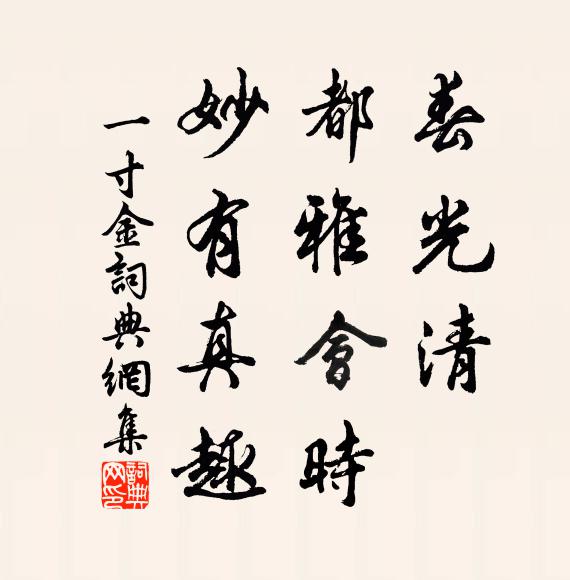 春光清
都雅會時
妙有真趣
一寸金詞典網集
詞典网印